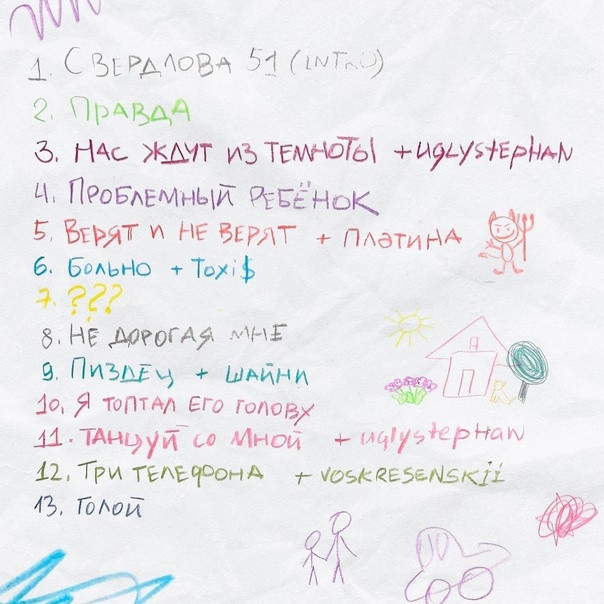 1. Свердлова 51 (INTRO)
2. Правда
3. Нас ждут из темноты + uglystephan
4. Проблемный ребёнок
5. Верят и не верят + Платина
6. Больно + Toxi$
7. ???
8. Не дорогая мне
9. Пиздец + шайни
10. Я топтал его голову
11. Танцуй со мной + uglystephan
12. Три телефона + voskresenskii
13. Голой